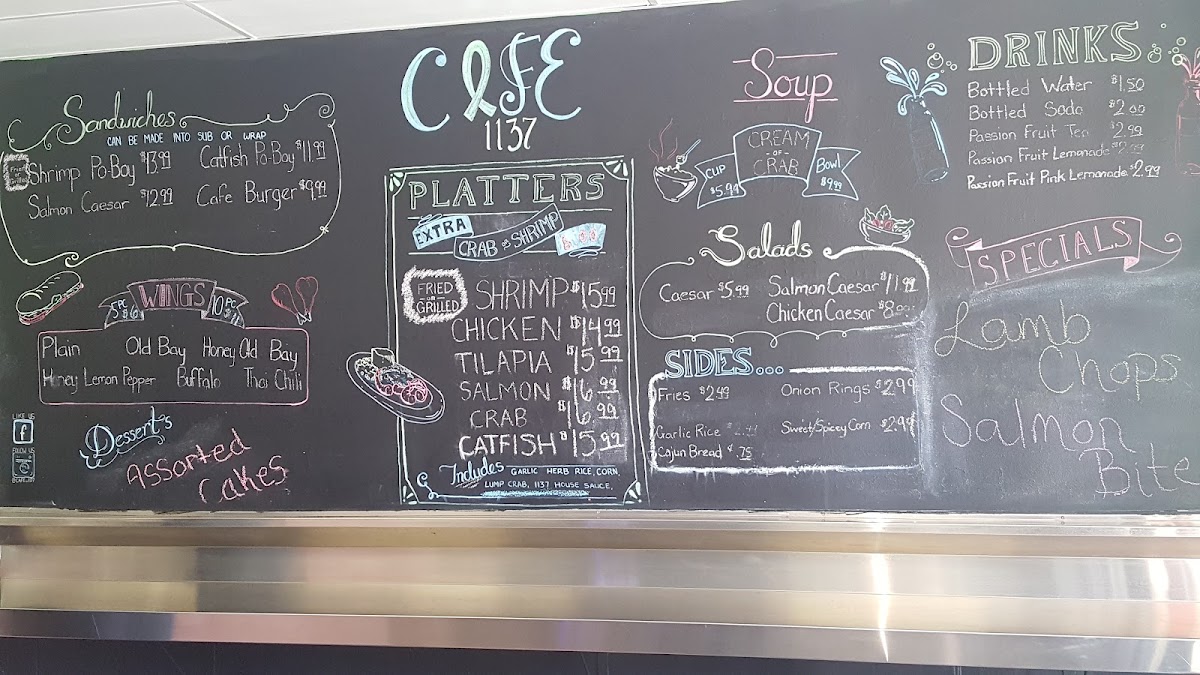 CAFE
1137
Sandwiches
CAN BE MADE INTO SUB OR WRAP
Fried or Grilled
Shrimp Po-Boy $13.99
Catfish Po-Boy $11.99
Salmon Caesar $12.99
Cafe Burger $9.99
WINGS
5 PC $6
10 PC
Plain Old Bay Honey Old Bay
Honey Lemon Pepper Buffalo Thai Chili
LIKE US
f
FOLLOW US
Dessert's
Assorted
Cakes
PLATTERS
EXTRA
CRAB OR SHRIMP
FRIED
OR
GRILLED
SHRIMP $15.99
CHICKEN $14.99
TILAPIA $15.99
SALMON $16.99
CRAB $16.99
CATFISH $15.99
Includes GARLIC HERB RICE, CORN,
LUMP CRAB, 1137 HOUSE SAUCE.
Soup
CREAM
OF
CRAB
CUP
$5.99
Bowl
$9.99
Salads
Caesar $5.99
Salmon Caesar $11.99
Chicken Caesar $8
SIDES...
Fries $2.49
Onion Rings $2.99
Garlic Rice
Sweet/Spicey Corn $2.99
Cajun Bread $.75
DRINKS
Bottled Water $1.50
Bottled Soda $2.00
Passion Fruit Tea $2.99
Passion Fruit Lemonade $2.99
Passion Fruit Pink Lemonade $2.99
SPECIALS
Lamb
Chops
Salmon
Bite